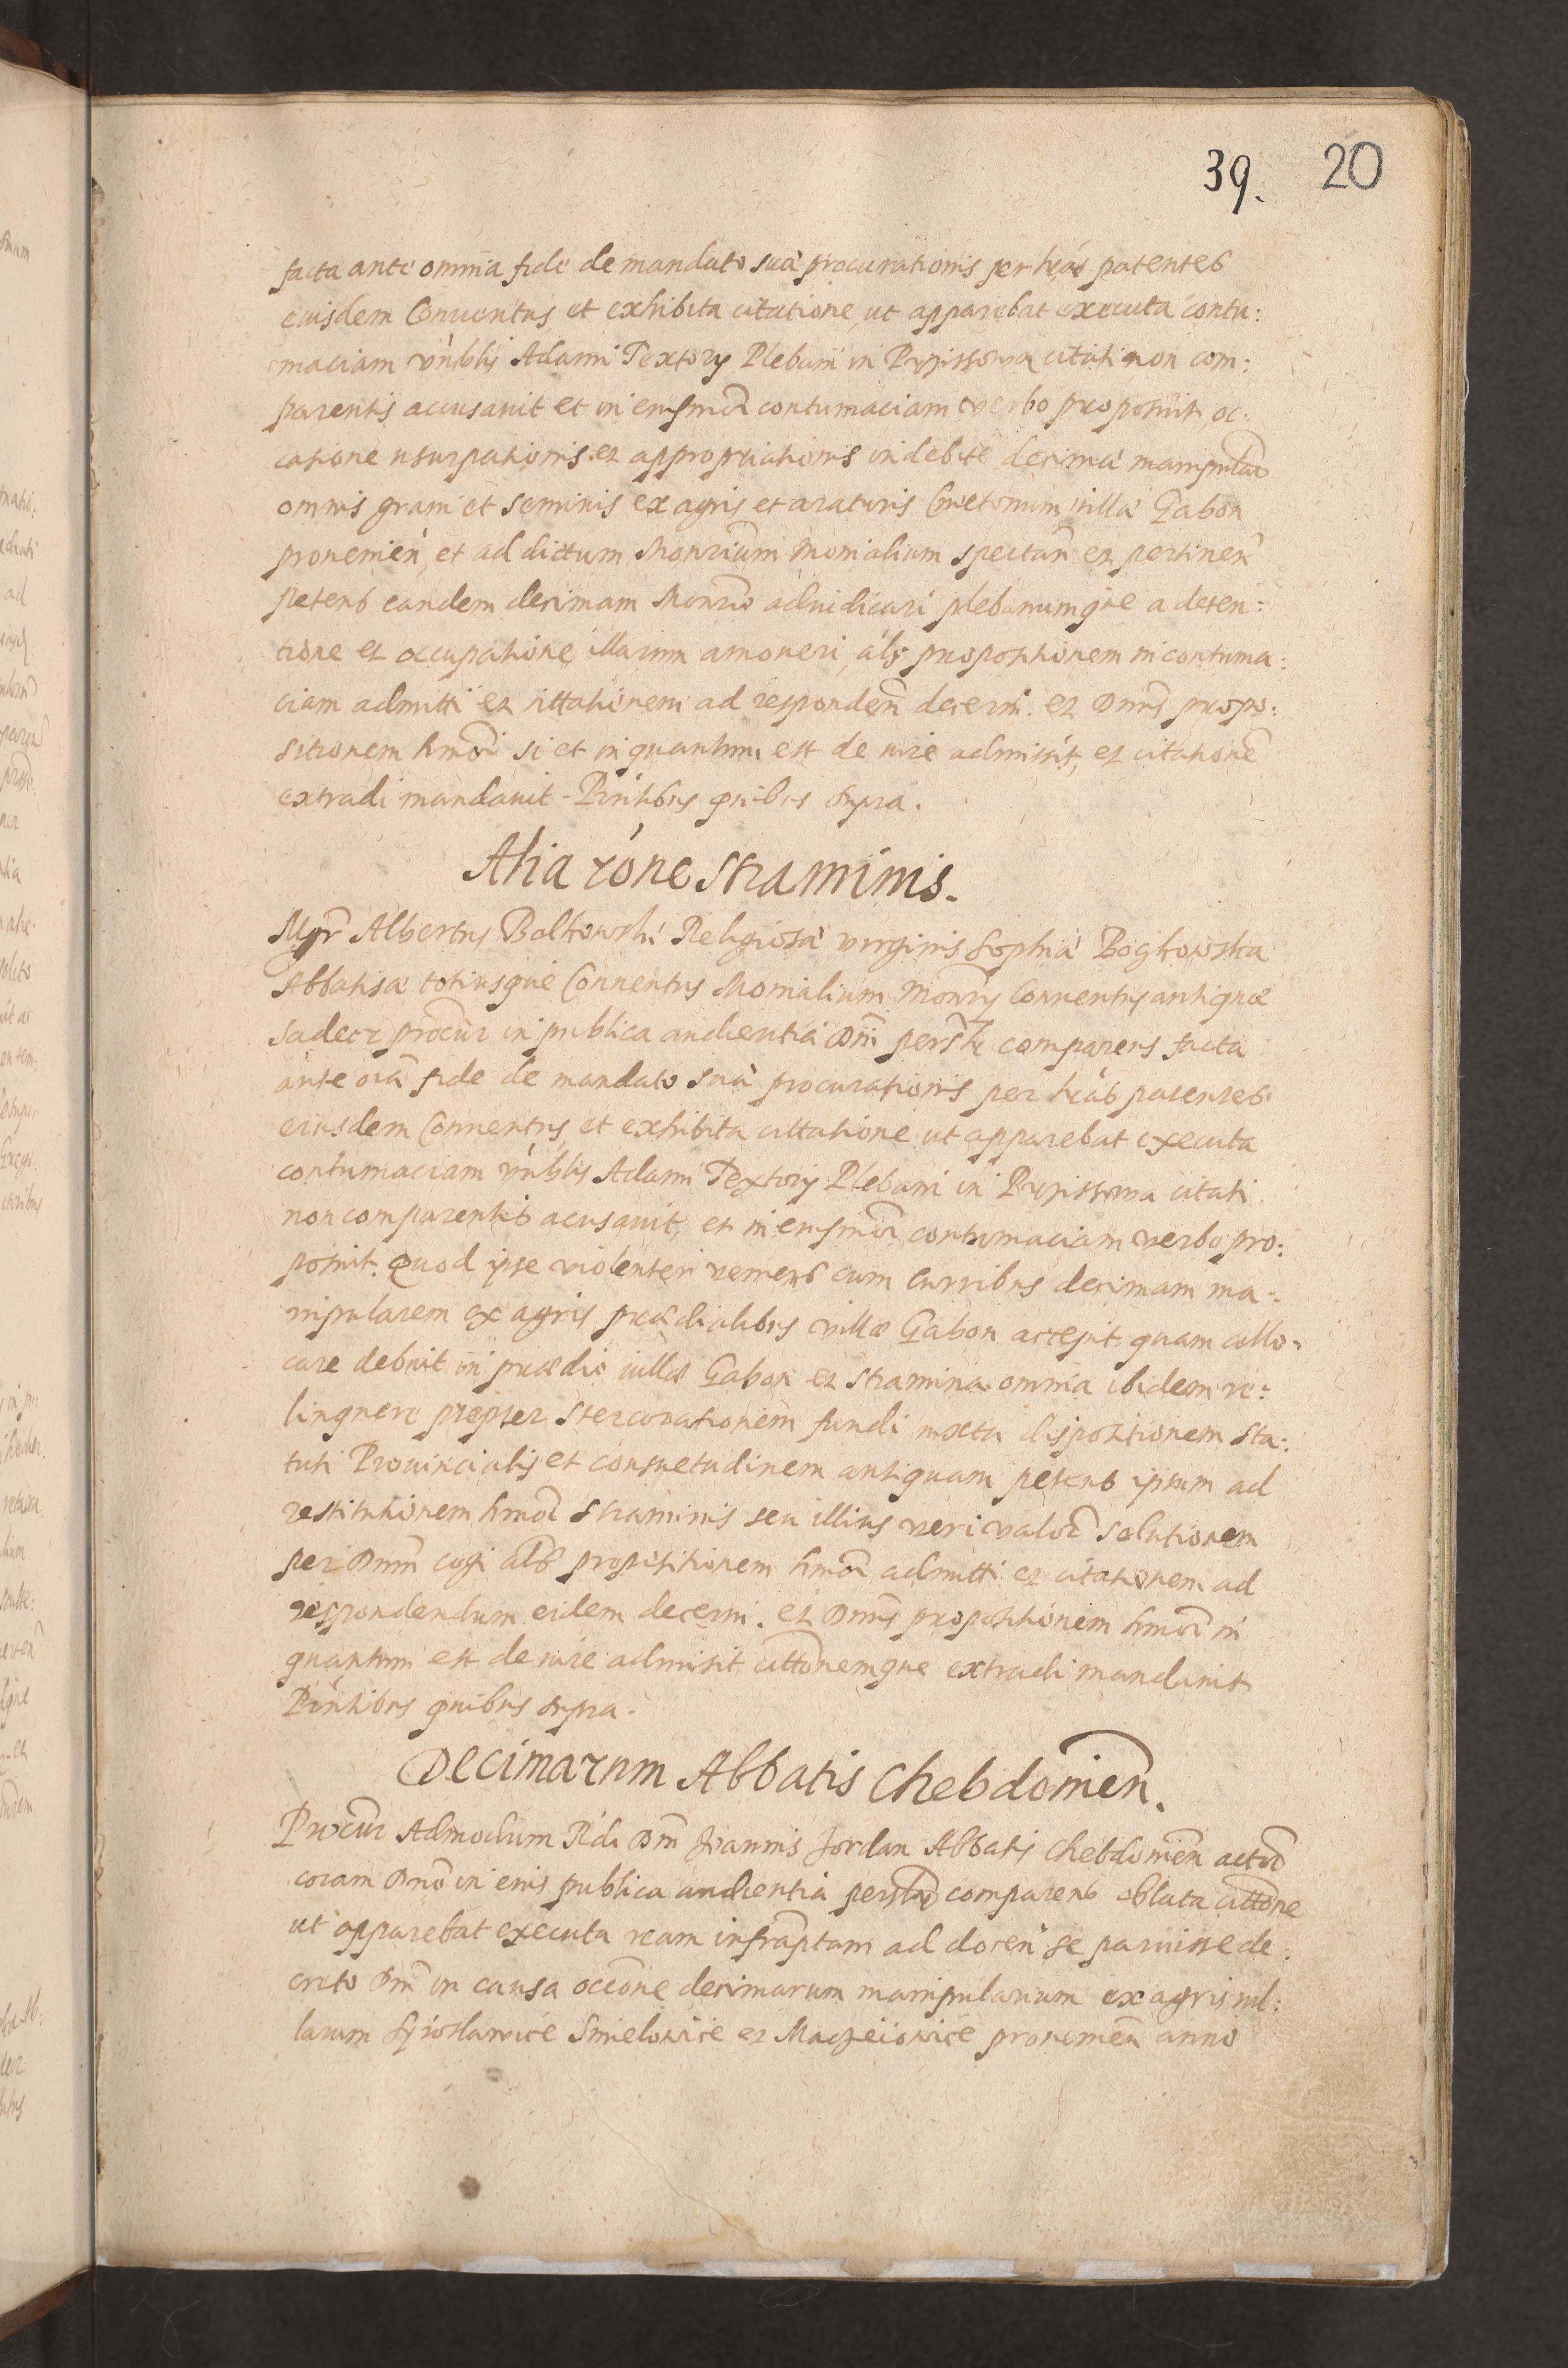 39. 20
facta ante omnia fide de mandato suæ procurationis per lrás patentes
eiusdem Conuentus et exhibita citatione, ut apparebat executa contu:
maciam vńblis Adami Textorÿ Plebani in citati non com:
parentis accusauit et in contumaciam verbo proposuit, oc:
catione usurpationis et appropriationis indebitè decimæ manipular
omnis grani et seminis ex agris et araturis Cmetonum villæ Gabon
prouenień, et ad dictum Monrium Monialium spectań et pertineń
petens eandem decimam Monrio adiudicari plebanumque a deten:
tione et occupatione illarum amoueri, als propositionem in contuma:
ciam admitti et cittationem ad respondeń decerni. et Dnus propo:
sitionem hmoi si et in quantum est de iure admisit, et citatione
extradi mandauit. Pńtibus quibus supra.
Alia róne straminis.
Mgr Albertus Religiosæ virginis Sophiæ
Abbatisæ totiusque Conuentus Monialium Monrÿ Conuentus antiquæ
Sadecz procur in publica audientia Dni comparens facta
ante oia fide de mandato suæ procurationis per lrás patentes
eiusdem Conuentus, et exhibita cittatione ut apparebat executa
contumaciam vńblis Adami Textorÿ Plebani in citati
non comparentis acusauit, et in contumaciam verbo pro:
posuit. Quod ipse violenter veniens cum curribus decimam ma:
nipularem ex agris prædialibus villæ Gabon accepit quam collo:
care debuit in prædio villæ Gabon et stramina omnia ibidem re:
linquere propter stercorationem fundi iuxta dispositionem sta:
tuti Prouincialis et consuetudinem antiquam petens ipsum ad
restitutionem hmoi straminis seu illius veri valor solutionem
per Dnum cogi als propositionem hmoi admitti et citationem ad
respondendum eidem decerni. et Dnus propositionem hmoi in
quantum est de iure admisit cittonemque extradi mandauit
Pńtibus quibus supra.
Decimarum Abbatis Chebdomien.
Procur Admodum Rdi Dni Joannis Jordan Abbatis Chebdomien actor
coram Dno in eius publica audientia comparens oblata cittone
ut apparebat executa ream infrascriptam ad doceń se paruisse de:
creto Dni in causa occone decimarum manipularium ex agris vil:
larum Smielowice et Maczeiowice prouenień anno